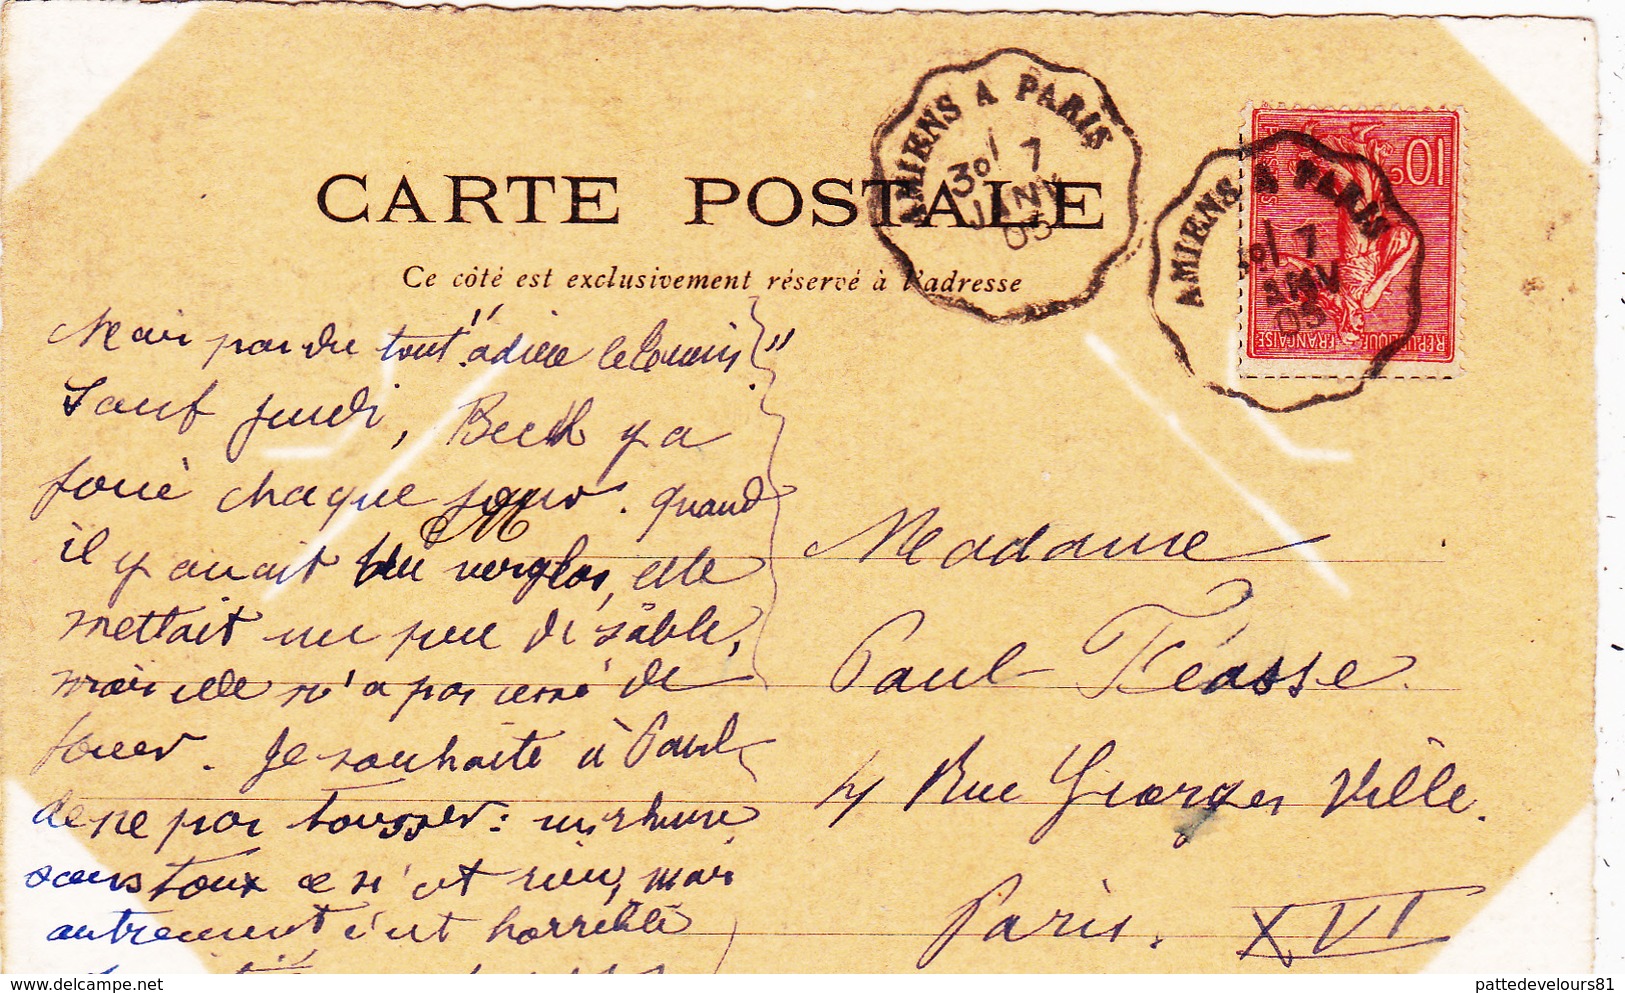 CARTE POSTALE
Ce côté est exclusivement réservé à l'adresse
AMIENS A PARIS
30/ 7
JANV
05
AMIENS A PARIS
30/ 7
JANV
05
10c
POSTES
RÉPUBLIQUE FRANÇAISE
Mais pas du tout "adieu
Sauf jeudi, Beck y a
joué chaque jour. Quand
il y avait du verglas, elle
mettait un peu de sable,
mais elle n'a pas cessé de
jouer. Je souhaite à Paul
de ne pas tousser: un rhume
sans toux ce n'est rien, mais
autrement c'est horrible
Madame
Paul Féasse.
4 Rue Georges Ville.
Paris. XVI
delcampe.net
pattedevelours81